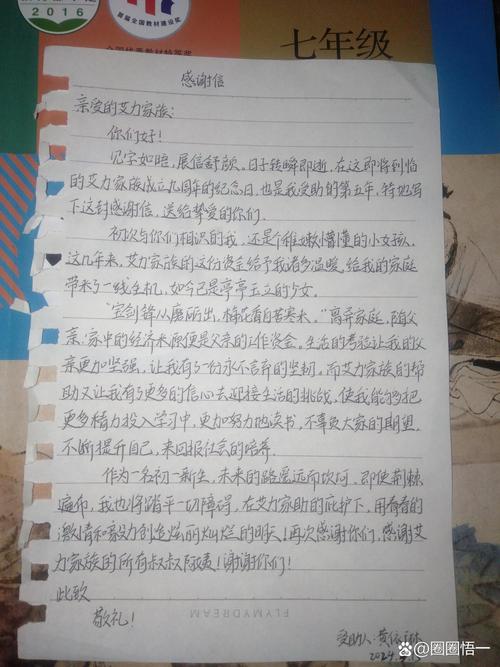 2016
首届全国教材建设奖
全国优秀教材特等奖
七年级
感谢信
亲爱的艾力家族:
你们好!
见字如晤,展信舒颜。日子转瞬即逝,在这即将到怡
的艾力家族成立九周年的纪念日,也是我受助的第五年,特地写
下这封感谢信,送给挚爱的你们。
初次与你们相识的我,还是个稚嫩懵懂的小女孩,
这几年来,艾力家族的这份资金给予我诸多温暖,给我的家庭
带来了一线生机,如今已是亭亭玉立的少女。
"宝剑锋从磨砺出,梅花香自苦寒来。"离异家庭,随父
亲,家中的经济来源便是父亲的工作资金。生活的考验让我的父
亲更加坚强,让我有了份永不言弃的坚韧,而艾力家族的帮
助又让我有了更多的信心去迎接生活的挑战,使我能够把
更多精力投入学习中,更加努力地读书,不辜负大家的期望,
不断提升自己,来回报社会的培养。
作为一名初一新生,未来的路遥远而坎坷,即使荆棘
遍布,我也将踏平一切障碍,在艾力家助的庇护下,用青春的
激情和毅力创造绚丽灿烂的明天!再次感谢你们,感谢艾
力家族的所有叔叔阿姨!谢谢你们!
此致
敬礼!
FLYMYDREAM
受助人:黄
2024.9.
@圈圈悟一